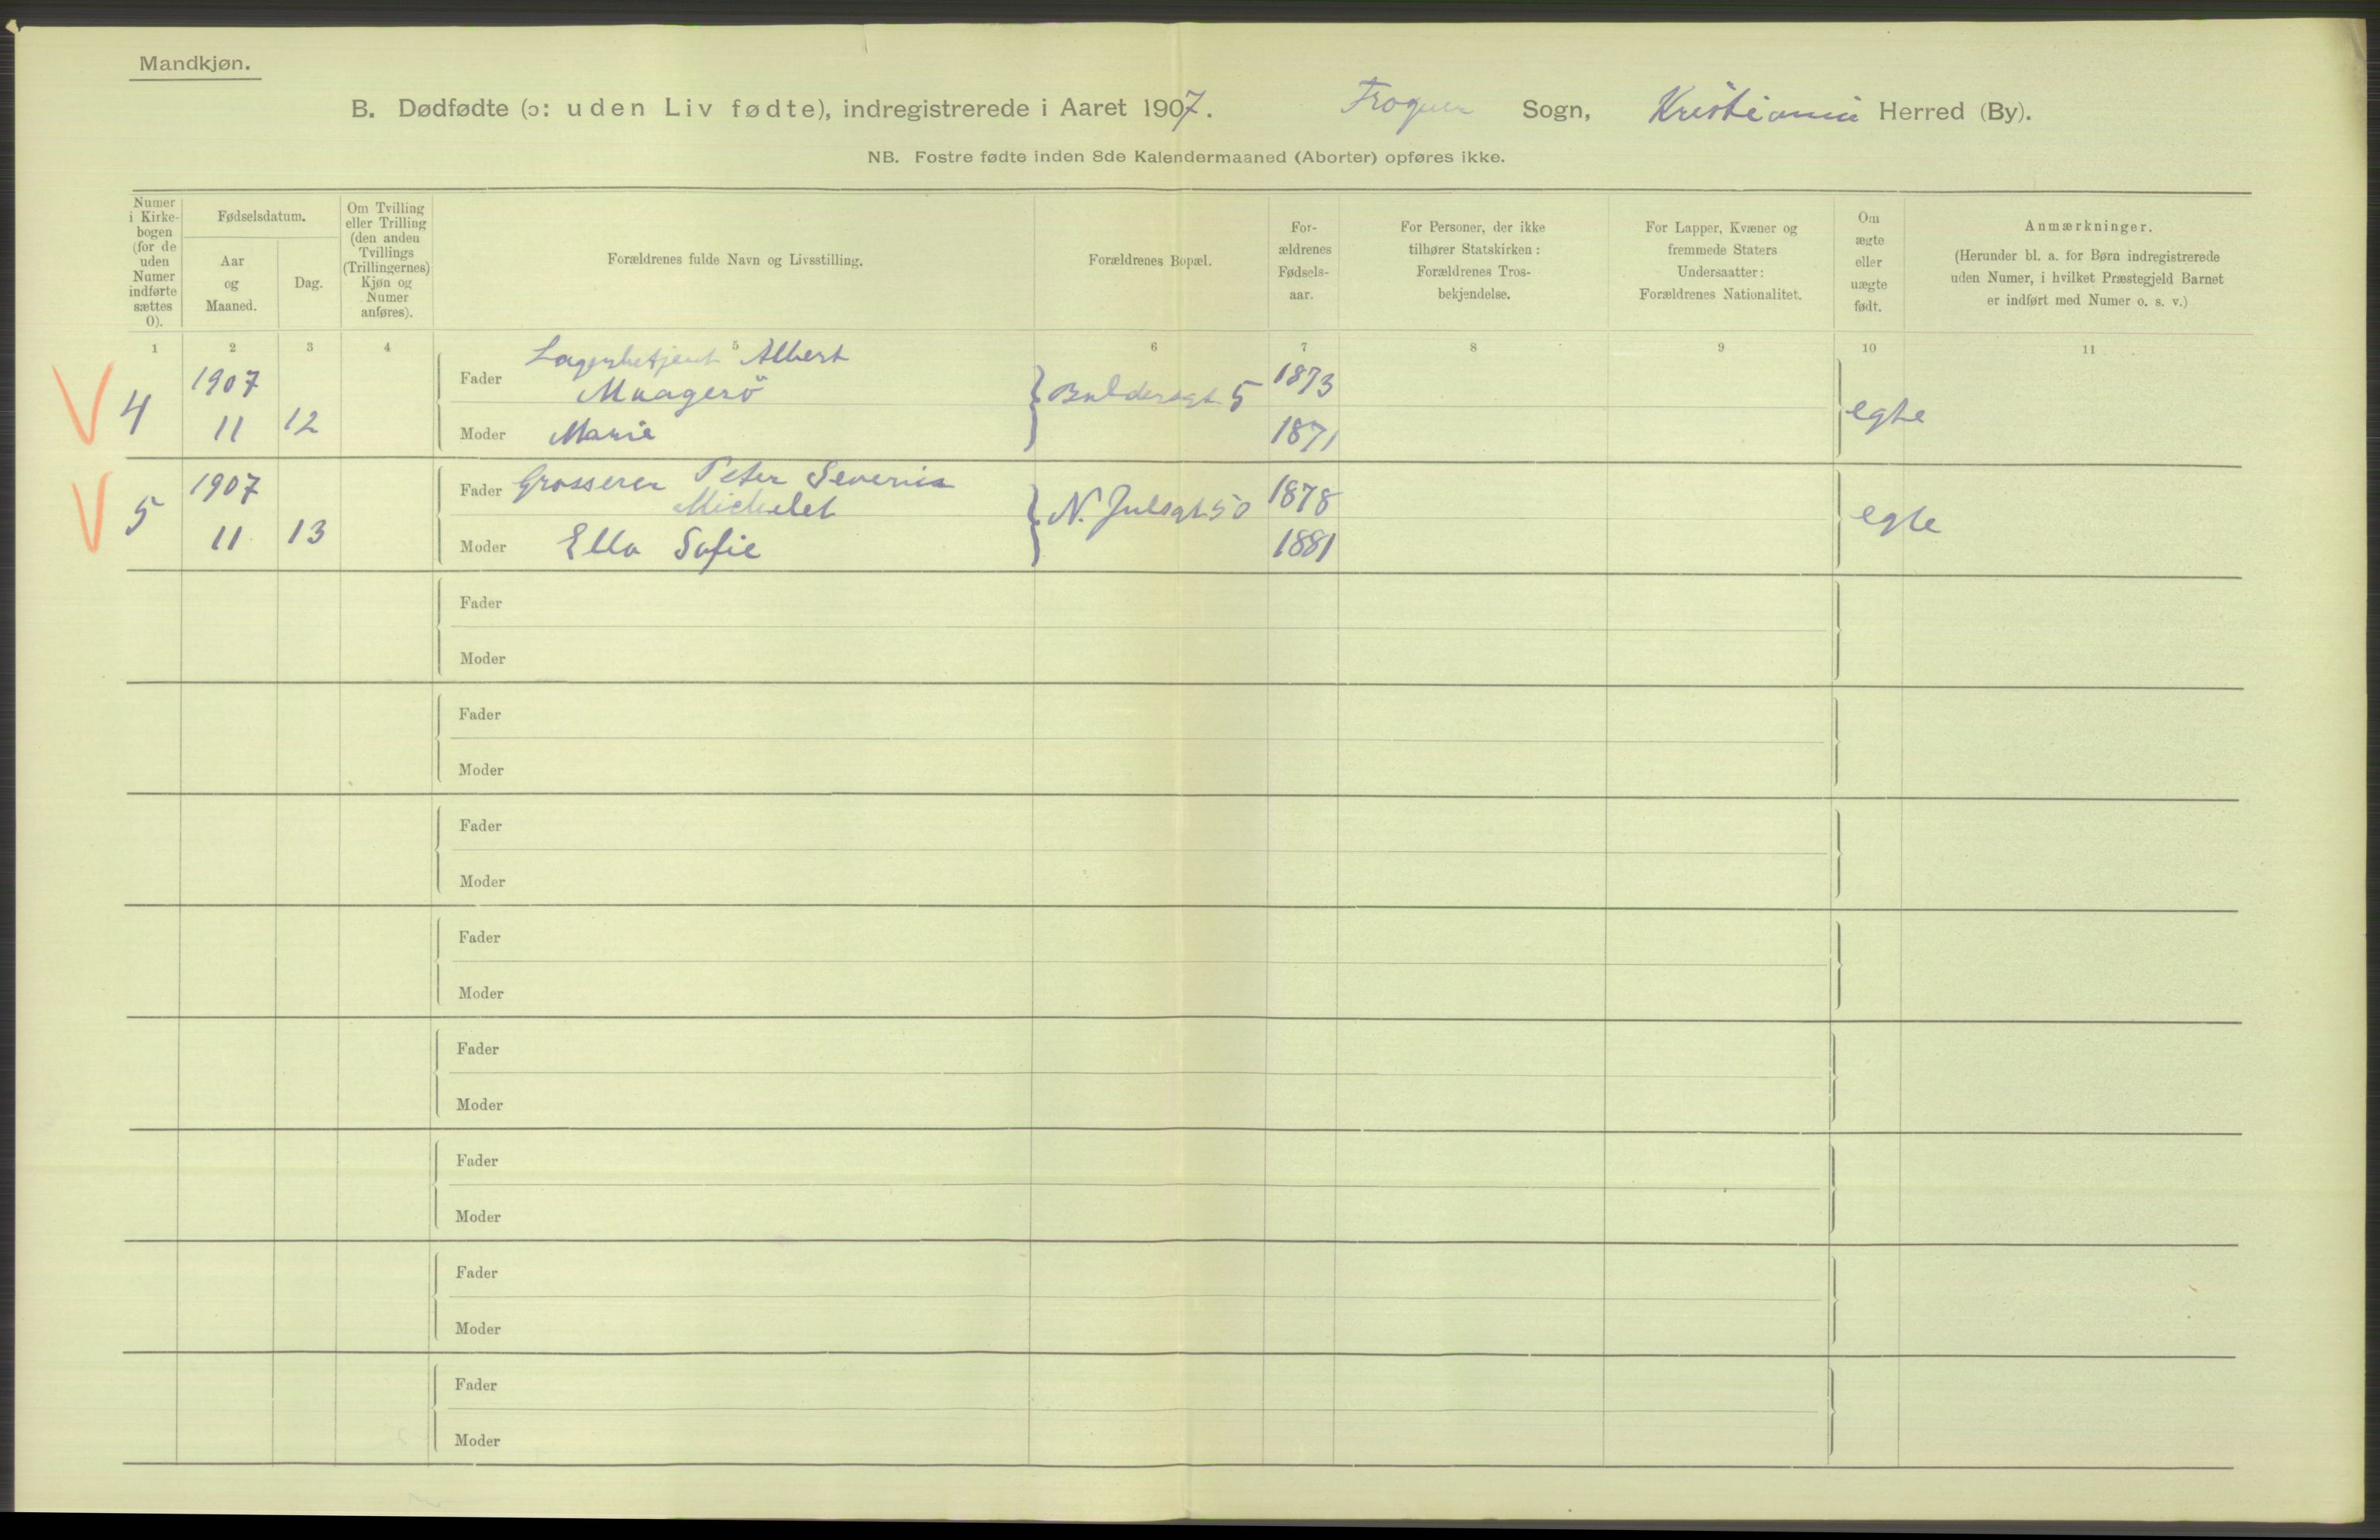 Mandkjøn.
B. Dødfødte (ɔ: uden Liv fødte), indregistrerede i Aaret 1907. Frogner Sogn, Kristiania Herred (By).
NB. Fostre fødte inden 8de Kalendermaaned (Aborter) opføres ikke.
Numer i Kirkebogen (for de uden Numer indførte sættes 0).
Fødselsdatum.
Aar og Maaned.
Dag.
Om Tvilling eller Trilling (den anden Tvillings (Trillingernes) Kjøn og Numer anføres).
Forældrenes fulde Navn og Livsstilling.
Forældrenes Bopæl.
Forældrenes Fødselsaar.
For Personer, der ikke tilhører Statskirken: Forældrenes Trosbekjendelse.
For Lapper, Kvæner og fremmede Staters Undersaatter: Forældrenes Nationalitet.
Om ægte eller uægte født.
Anmærkninger.
(Herunder bl. a. for Børn indregistrerede uden Numer, i hvilket Præstegjeld Barnet er indført med Numer o. s. v.)
1 2 3 4 5 6 7 8 9 10 11
V 4 1907 11 12
Fader Lagerbetjent Albert
Maagerö
Moder Marie
Baldersgt 5
1873
1871
egte
V 5 1907 11 13
Fader Grosserer Peter Severin
Michelet
Moder Ella Sofie
N. Julsgt 50
1878
1881
egte
Fader
Moder
Fader
Moder
Fader
Moder
Fader
Moder
Fader
Moder
Fader
Moder
Fader
Moder
Fader
Moder